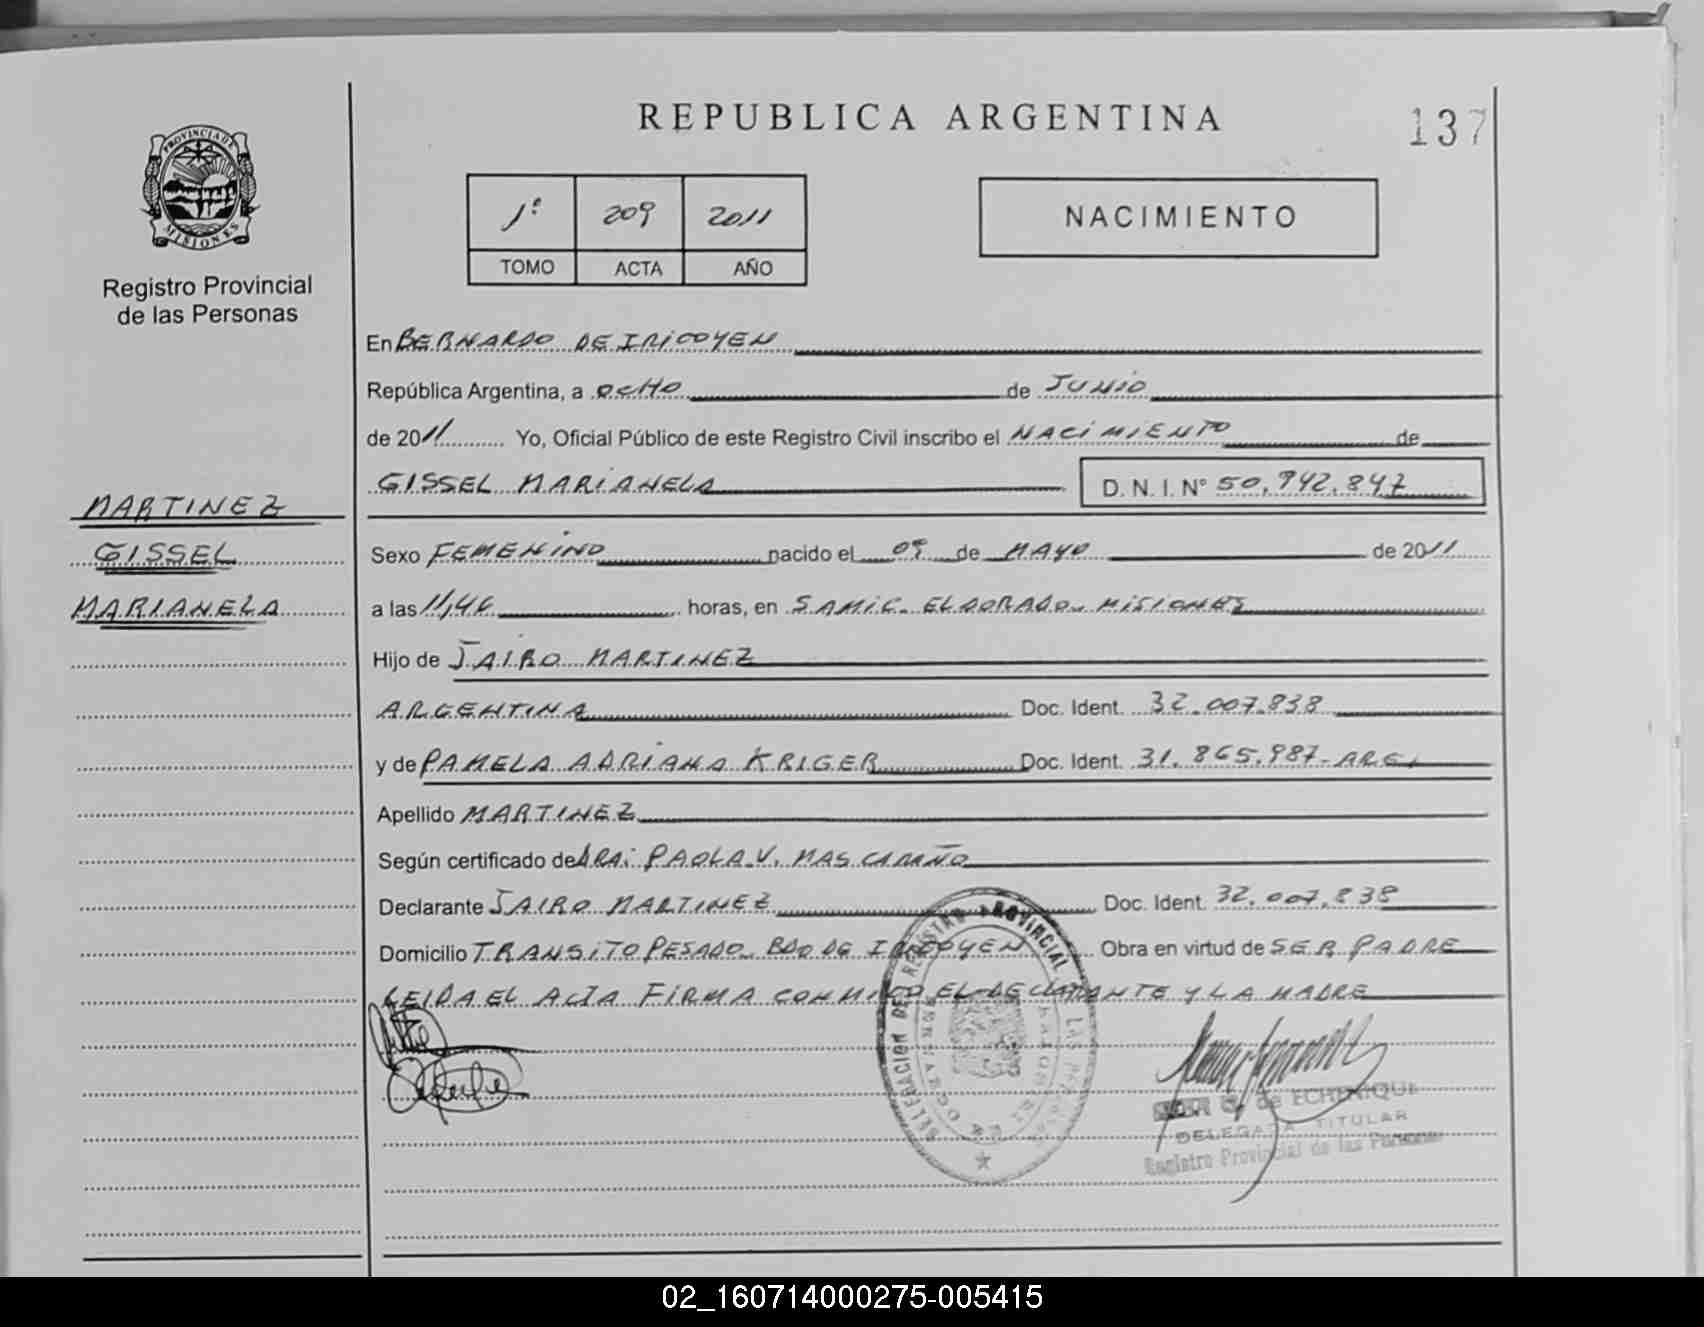 REPUBLICA ARGENTINA
137
PROVINCIA DE
MISIONES
Registro Provincial
de las Personas
1º 209 2011
TOMO ACTA AÑO
NACIMIENTO
En BERNARDO DE IRIGOYEN
República Argentina, a OCHO de JUNIO
de 2011 Yo, Oficial Público de este Registro Civil inscribo el NACIMIENTO de
GISSEL MARIANELA D. N. I. N° 50.942.847
MARTINEZ
GISSEL
MARIANELA
Sexo FEMENINO nacido el 09 de MAYO de 2011
a las 11,46 horas, en SAMIC. ELDORADO. MISIONES
Hijo de JAIRO MARTINEZ
ARGENTINA Doc. Ident. 32.007.838
y de PAMELA ADRIANA KRIGER Doc. Ident. 31.865.987 - ARG.
Apellido MARTINEZ
Según certificado de DRA: PAOLA V. MASCAREÑO
Declarante JAIRO MARTINEZ Doc. Ident. 32.007.838
Domicilio TRANSITO PESADO. BDO DE IRIGOYEN Obra en virtud de SER PADRE
LEIDA EL ACTA FIRMA CONMIGO EL DECLARANTE Y LA MADRE
DELEGACION DEL REGISTRO PROVINCIAL DE LAS PERSONAS
de ECHENIQUE
DELEGADA TITULAR
Registro Provincial de las Personas
02_160714000275-005415